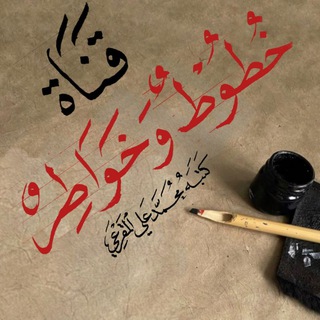 قناة
خُطُوطْ وَخَوَاطِره
كتبه محمد علي المفرغي